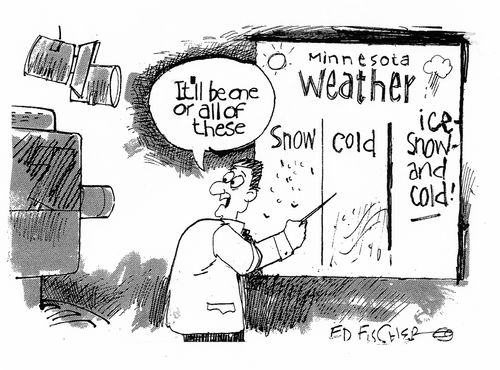 It'll be one
or all of
these
Minnesota
Weather
Snow
Cold
ice-
snow-
and
cold!
ED FISCHER